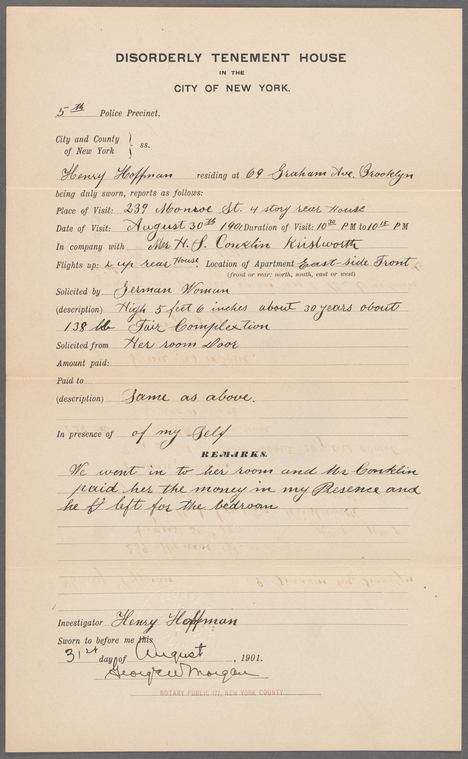 DISORDERLY TENEMENT HOUSE
IN THE
CITY OF NEW YORK.
5th Police Precinct.
City and County
of New York } ss.
Henry Hoffman residing at 69 Graham Ave. Brooklyn
being duly sworn, reports as follows:
Place of Visit: 239 Monroe St. 4 story rear House
Date of Visit: August 30th 1901 Duration of Visit: 10 PM to 10 PM
In company with Mr H. S. Conklin
Flights up: 2 up rear House Location of Apartment East-side Front
(front or rear: north, south, east or west)
Solicited by German Woman
(description) High 5 feet 6 inches about 30 years about
138 lb Fair Complextion
Solicited from Her room Door
Amount paid:
Paid to
(description) Same as above.
In presence of of my Self
REMARKS.
We went in to her room and Mr Conklin
paid her the money in my Presence and
he & I left for the bedroom
Investigator Henry Hoffman
Sworn to before me this
31st day of August , 1901.
George W Morgan
NOTARY PUBLIC 177, NEW YORK COUNTY